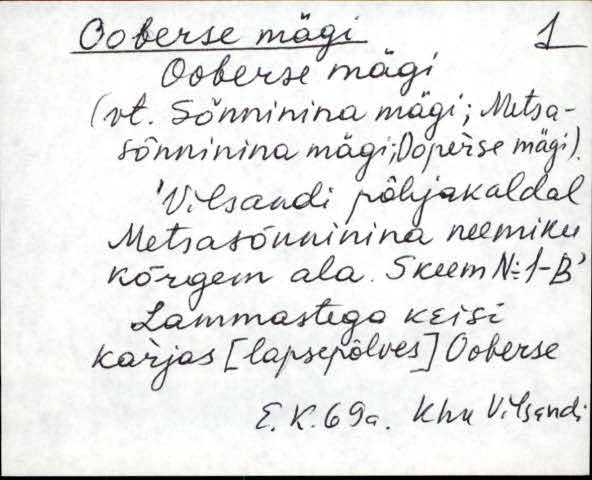 Ooberse mägi 1
Ooberse mägi
(vt. Sõnninina mägi; Metsa-
sõnninina mägi; Ooperse mägi).
'Vilsandi põhjakaldal
Metsasõnninina neemiku
kõrgem ala. Skeem №1-B'
Lammastega keisi
karjas [lapsepõlves] Ooberse
E.K. 69a. Khn Vilsandi